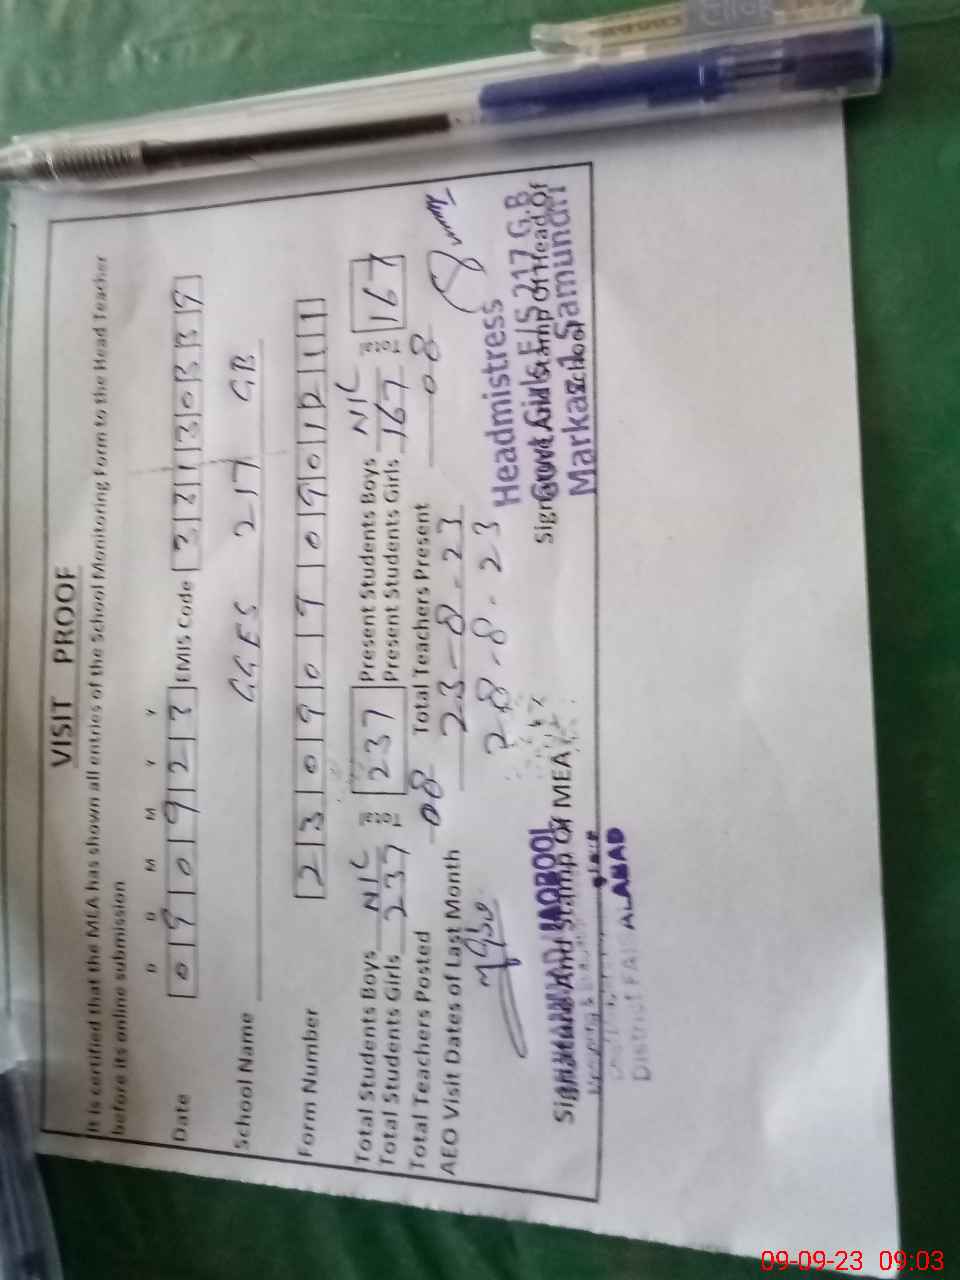 VISIT PROOF
It is certified that the MEA has shown all entries of the School Monitoring Form to the Head Teacher
before its online submission
D D M M Y Y
Date 0 9 0 9 2 3 EMIS Code 3 3 1 3 0 3 3 9
School Name GGES 217 GB
Form Number 2 3 0 9 0 7 0 9 0 1 2 1 1
Total Students Boys NIL 237 Present Students Boys NIL 167
Total Students Girls 237 Present Students Girls 167
Total Teachers Posted 08 Total Teachers Present 08
AEO Visit Dates of Last Month 23-8-23
28-8-23
Signature And Stamp Of MEA
MAQBOOL
District
Headmistress
Govt Girls E/S 217 G.B
Markaz 1 Samundri
Signature And Stamp Of Head Of
School
09-09-23 09:03